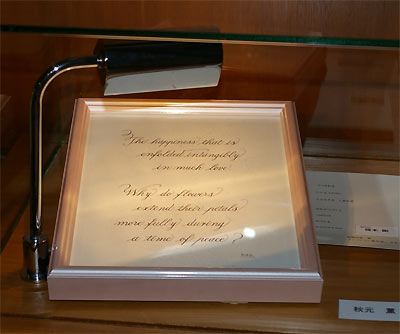 The happiness that is
enfolded intangibly
in much love
Why do flowers
extend their petals
more fully during
a time of peace?
秋元 薫